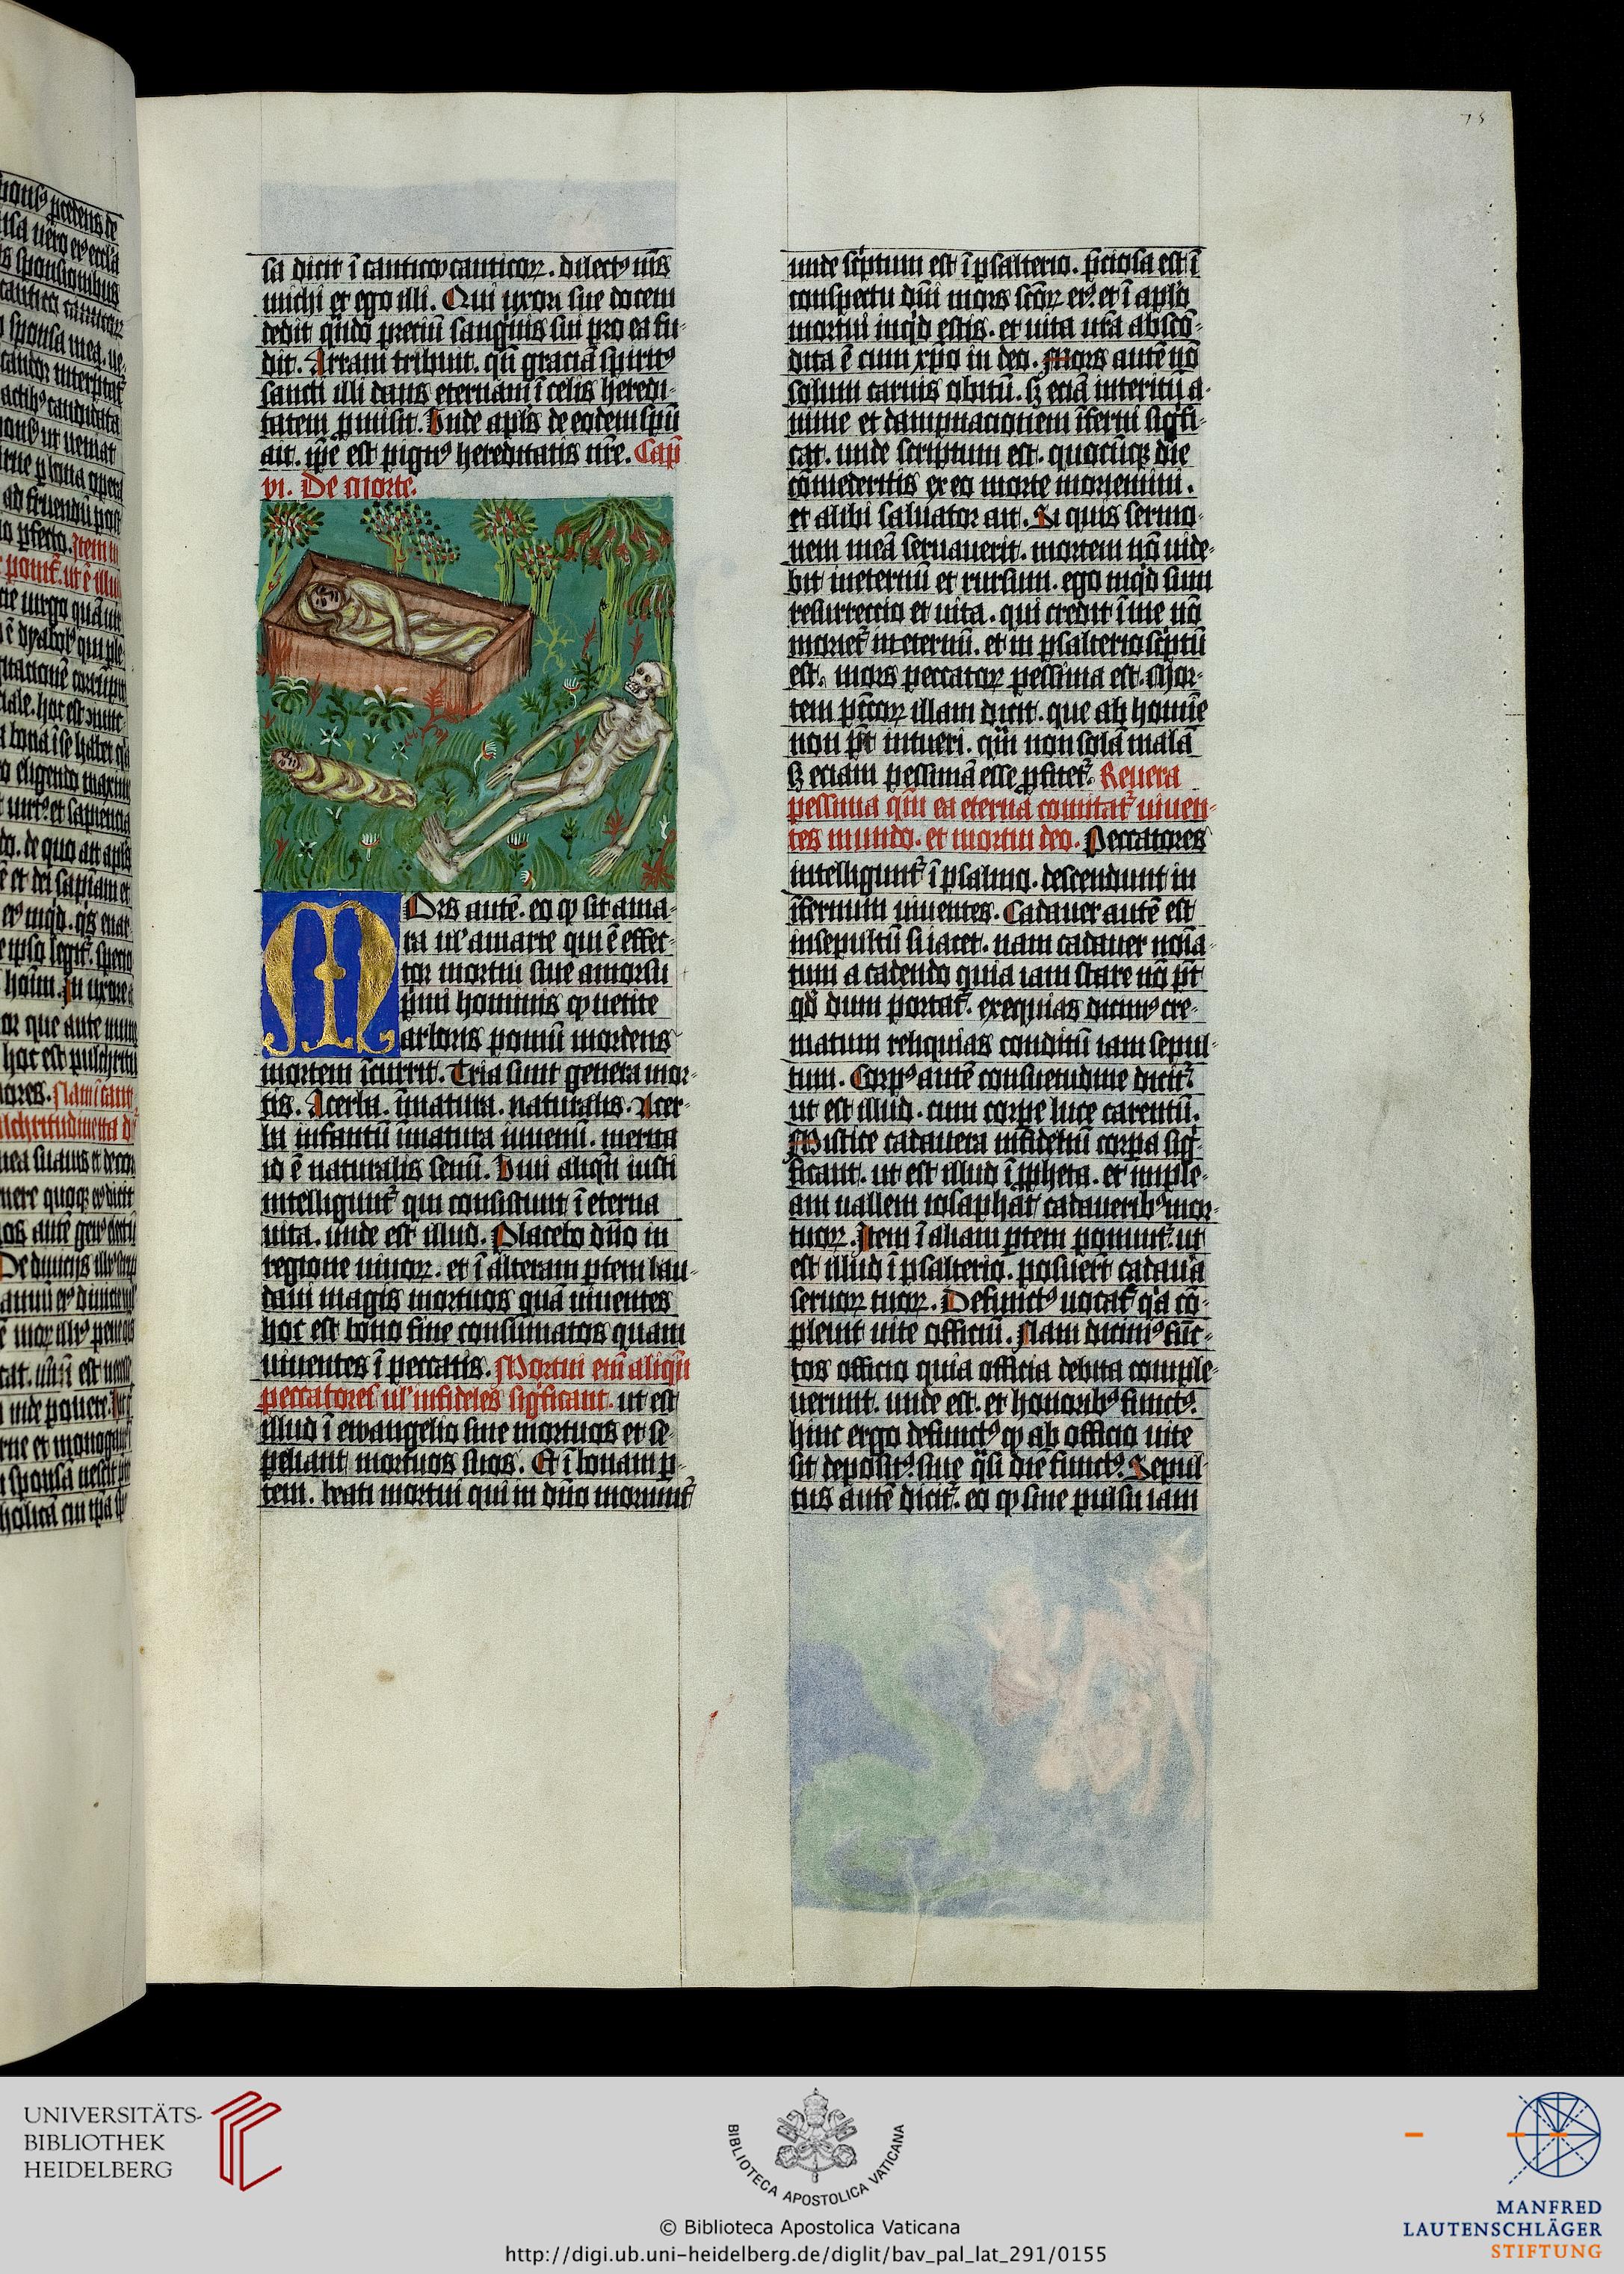 75
sa dicit ī canticꝭ canticoꝝ. dilectꝰ mīs
michi et ego illi. Qui uxori sue docem
dedit qn̄do preciū sanguīs sui pro ea fu-
dit. Arram tribuit. qn̄ graciā spiritꝰ
sancti illi dans eternam ī celis heredi-
tatem ꝓmisit. Vnde apls̄ de eodem spū
ait. ip̄e est pignꝰ hereditatis nr̄e. Cap̄
vi. De morte.
Mors autē. eo qꝫ sit ama-
ra ul' amarte qui ē effec-
tor mortui siue amorsu
p̄mi hominis qꝫ uetite
arboris pomū mordens
mortem īcurrit. Tria sunt genera mor-
tis. Acerba. īmatura. naturalis. Acer-
ba infantū īmatura iuuenū. merita
id ē naturalis senū. Viui aliqn̄ iusti
intelligunt̄ qui consistunt ī eterna
uita. unde est illud. Placebo dn̄o in
regione uiuoꝝ. et ī alteram ꝑtem lau-
daui magis mortuos quā uiuentes
hoc est bono fine consumatos quam
uiuentes ī peccatis. Mortui em̄ aliqn̄
peccatores ul' infideles significant. ut est
illud ī ewangelio sine mortuos et se-
peliant mortuos suos. Et ī bonam ꝑ-
tem. beati mortui qui in dn̄o moriunt̄
unde sc̄ptum est ī psalterio. p̄ciosa est ī
conspectu dn̄i mors sc̄oꝝ eiꝰ. et ī apl̄o
mortui inq̇d estis. et uita ur̄a abscō-
dita ē cum xp̄o in deo. Mors autē nō
solum carnis obitū. sꝫ eciā interitū a-
nime et dampnacionem īferni siġfi-
cat. unde scriptum est. quacūqꝫ die
cōmederitis ex eo morte moriemini.
et alibi saluator ait. Si quis sermo-
nem meā seruauerit. mortem nō uide-
bit ineternū et rursum. ego inq̇d sum
resurreccio et uita. qui credit ī me nō
moriet̄ ineternū. et in psalterio sc̄ptū
est. mors peccatoꝝ pessima est. Mor-
tem pc̄coꝝ illam dicit. que ab homīe
non pt̄ intueri. qm̄ non solā malā
sꝫ eciam pessimā esse ꝓfitet̄. Reuera
pessima qm̄ ea eterna comitat̄ uiuen-
tes mundo. et mortui deo. Peccatores
intelligunt̄ ī psalmo. descendunt in
īfernum uiuentes. Cadauer autē est
insepultū si iacet. nam cadauer noīa-
tum a cadendo quia iam stare nō pt̄
qd̄ dum portat̄. exequias dicimꝰ cre-
matum reliquias conditū iam sepul-
tum. Corpꝰ autē consuetudine dicit̄
ut est illud. cum corꝑe luce carentū.
Mistice cadauera infidelium corꝑa siġ-
ficant. ut est illud ī ꝓpheta. et imple-
am uallem iosaphat cadaueribꝰ mor-
tuoꝝ. Item ī aliam ꝑtem ponunt̄ ut
est illud ī psalterio. posuerт̄ cadau'a
seruoꝝ tuoꝝ. Defunctꝰ uocat̄ q̇a cō-
pleuit uite officiū. Nam dicimꝰ fūc-
tos officio quia officia debita comple-
uerunt. unde est. et honoribꝰ functꝰ.
hinc ergo defunctꝰ qꝫ ab officio uite
sit depositꝰ. siue q̇si die functꝰ. Sepul-
tus autē dicit̄. eo qꝫ sine pulsu iam
UNIVERSITÄTS-
BIBLIOTHEK
HEIDELBERG
BIBLIOTECA APOSTOLICA VATICANA
© Biblioteca Apostolica Vaticana
http://digi.ub.uni-heidelberg.de/diglit/bav_pal_lat_291/0155
MANFRED
LAUTENSCHLÄGER
STIFTUNG